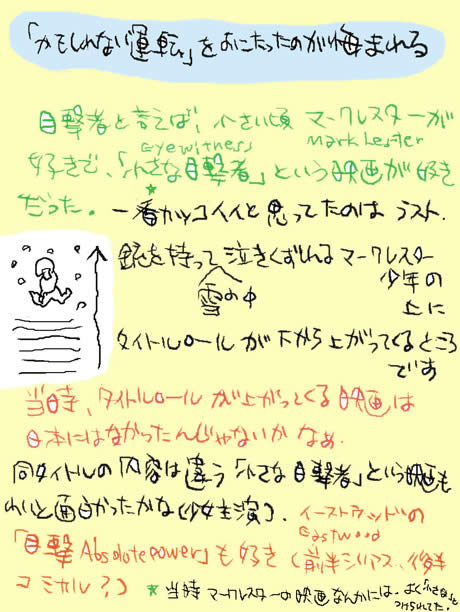 「かもしれない運転」をおこたったのが悔まれる
目撃者と言えば、小さい頃 マークレスターが
eyewitness Mark Lester
好きで、「小さな目撃者」という映画が好き
だった。
一番カッコイイと思ってたのは ラスト.
銃を持って泣きくずれる マークレスター
雪の中
少年の
上に
タイトルロールが下から上がってくるところ
です
当時、タイトルロールが上がってくる映画は
日本にはなかったんじゃないかなぁ.
同タイトルの内容は違う「小さな目撃者」という映画も
わいと面白かったかな(少女主演).
イーストウッドの
Eastwood
「目撃 Absolute power」も好き(前半シリアス、後半
コミカル?)
当時 マークレスターの映画なんかには、よく「小さな」と
つけられてた.